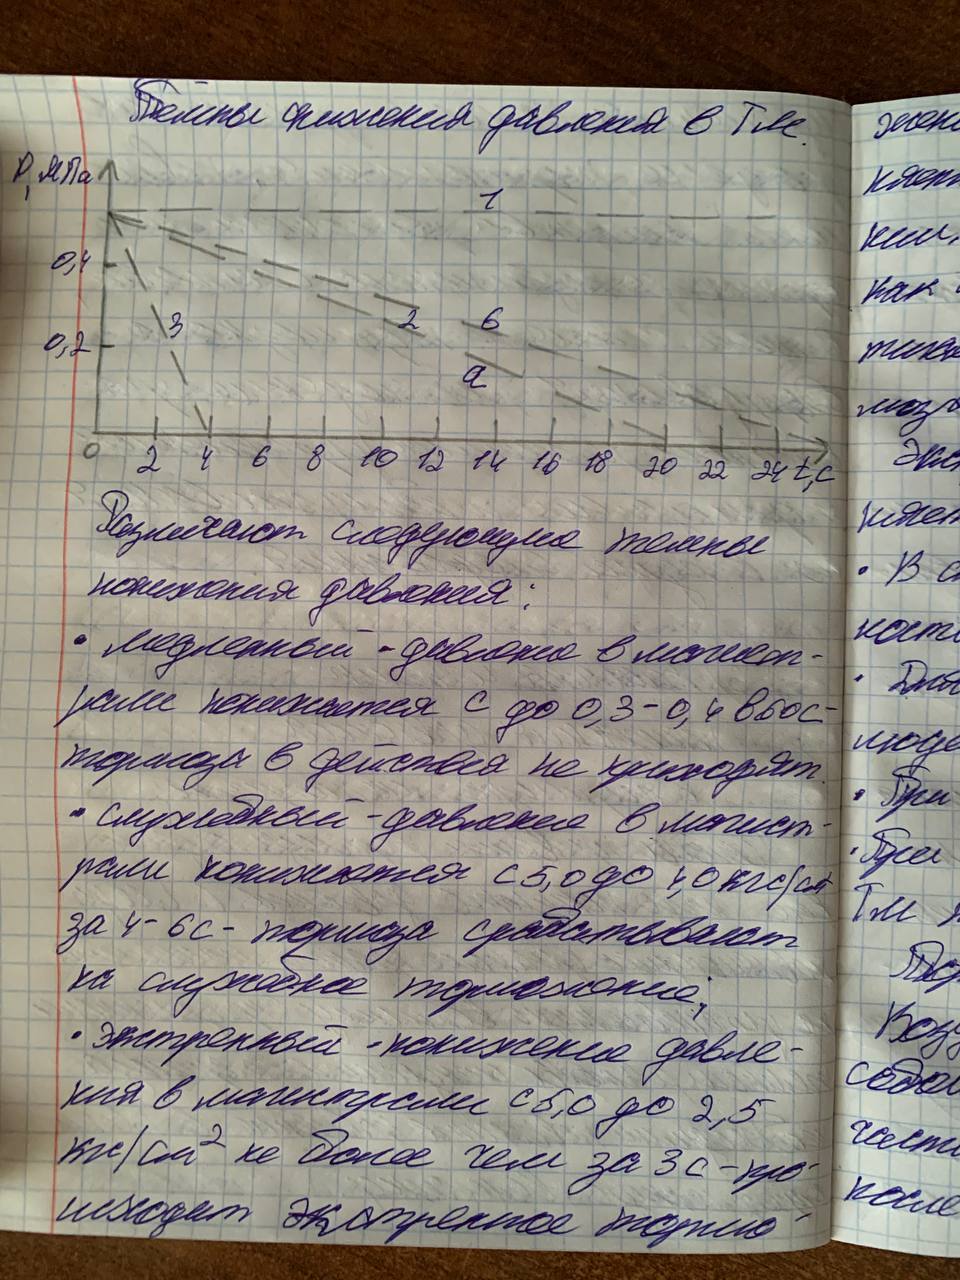 Темпы снижения давления в ТМ.
Р, МПа
1
0,4
3
2
б
0,2
а
0 2 4 6 8 10 12 14 16 18 20 22 24 t, с
Различают следующие темпы
понижения давления:
• медленный - давление в магист-
рали понижается с до 0,3-0,4 в 60с-
тормоза в действия не приходят.
• служебный - давление в магист-
рали понижается с 5,0 до 4,0 кгс/см²
за 4-6с - тормоза срабатывают
на служебное торможение;
• экстренный - понижение давле-
ния в магистрали с 5,0 до 2,5
кгс/см² не более чем за 3с - про-
исходит экстренное тормо-
кие,
как
Экс
• В с
• При
• При
ТМ
Возд
части
после